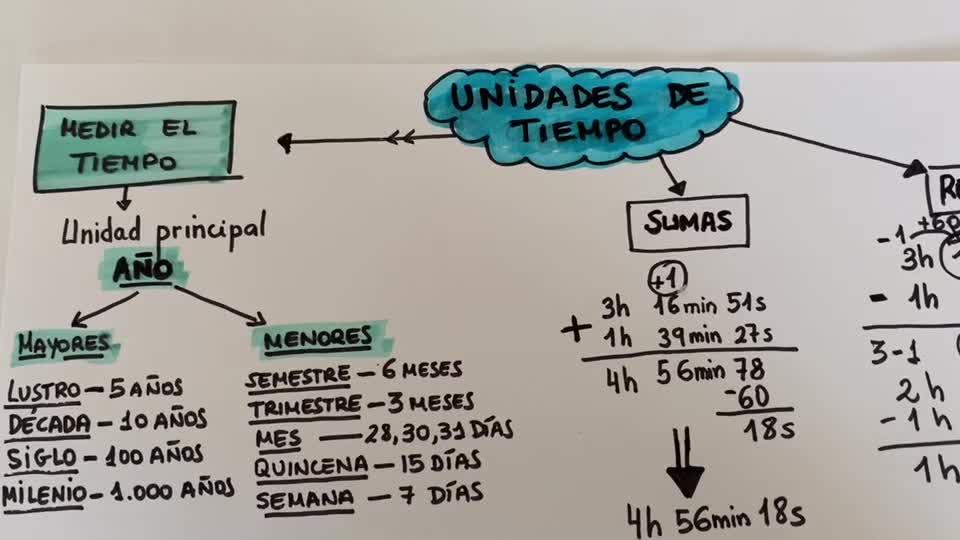 UNIDADES DE
TIEMPO
MEDIR EL
TIEMPO
Unidad principal
AÑO
MAYORES
LUSTRO - 5 AÑOS
DÉCADA - 10 AÑOS
SIGLO - 100 AÑOS
MILENIO - 1.000 AÑOS
MENORES
SEMESTRE - 6 MESES
TRIMESTRE - 3 MESES
MES - 28, 30, 31 DÍAS
QUINCENA - 15 DÍAS
SEMANA - 7 DÍAS
SUMAS
+1
3h 16min 51s
+ 1h 39min 27s
4h 56min 78
-60
18s
4h 56min 18s
-1 +60
3h
- 1h
3-1
2h
- 1h
1h